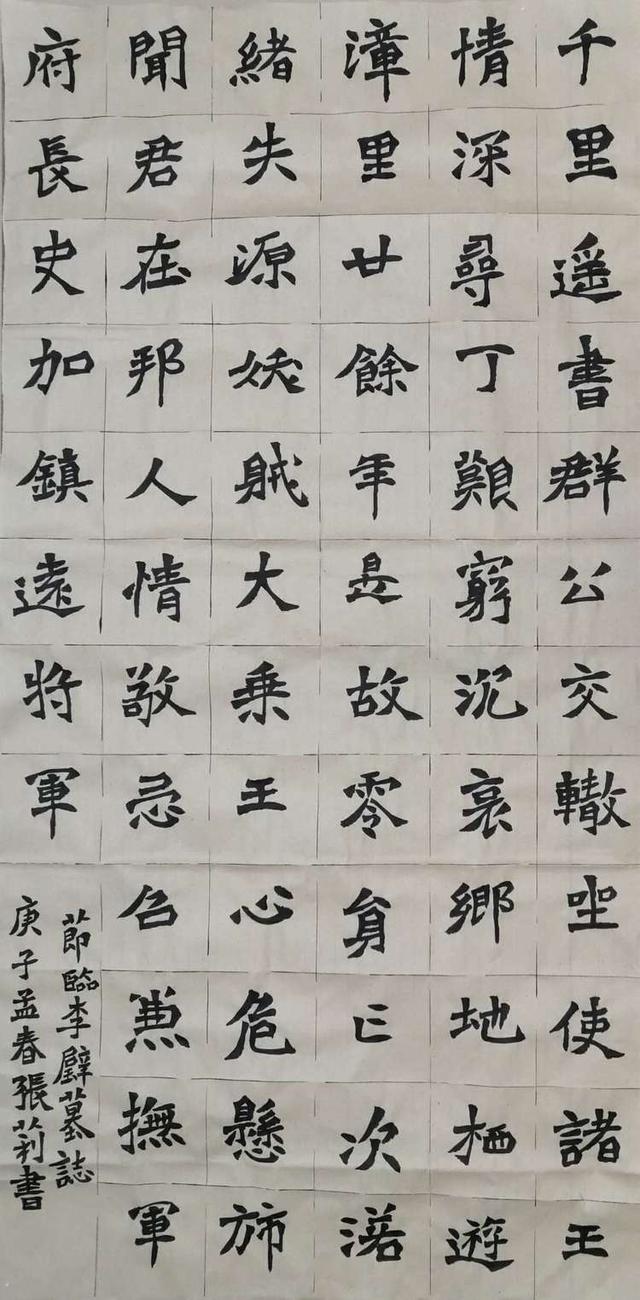 千里遥書群公交轍坐使諸王
情深尋丁艱窮沉哀鄉地栖遊
漳里廿餘年是故零身亡次渃
緒失源妖賊大乘王心危懸旆
聞君在邦人情敬忌召兼撫軍
府長史加鎮遠將軍
節臨李璧墓誌
庚子孟春張莉書